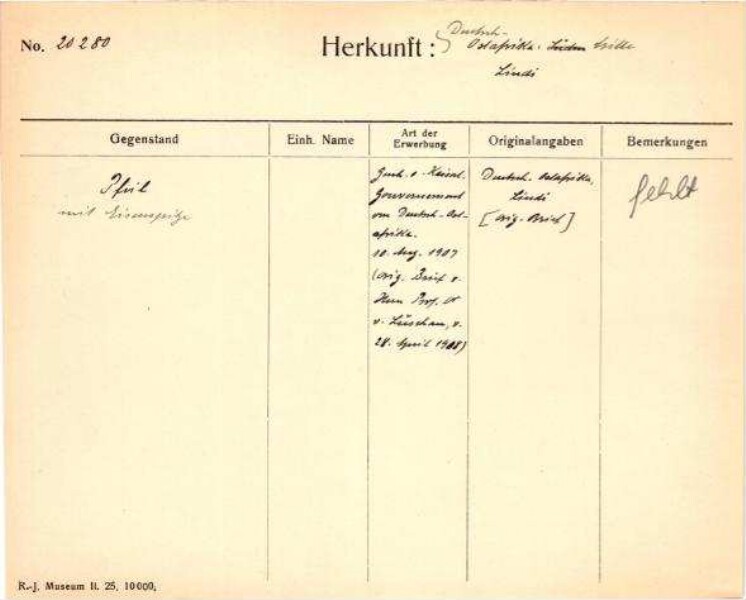 No. 20280
Herkunft: Deutsch-
Ostafrika. Süden Mitte
Lindi
Gegenstand
Einh. Name
Art der
Erwerbung
Originalangaben
Bemerkungen
Pfeil
mit Eisenspitze
Gesch. v. Kaiserl.
Gouvernement
von Deutsch-Ost-
afrika.
10. Aug. 1907
(orig. Brief v.
Herrn Prof. Dr
v. Lüschau, v.
28. April 1908)
Deutsch. Ostafrika,
Lindi
[orig.-Brief]
fehlt
R.-J. Museum II. 25. 10000.